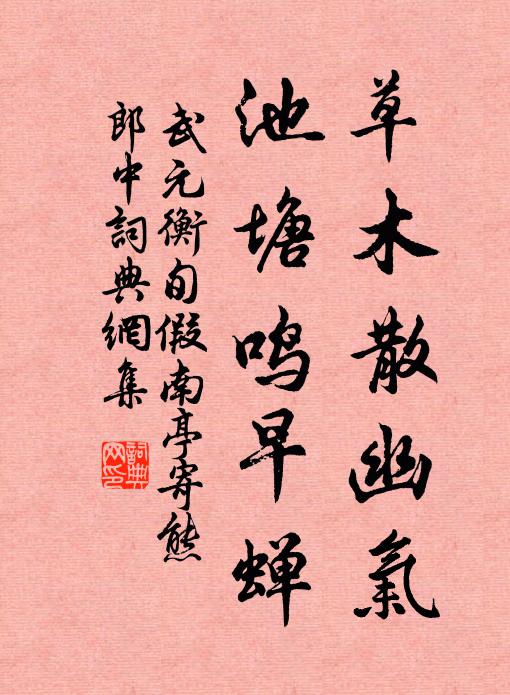 草木散幽氣
池塘鸣早蝉
武元衡旬假南亭寄熊
郎中詞典網集
詞典网印